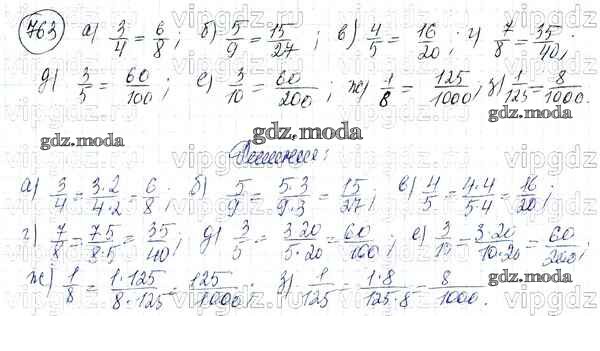 763 а) 3/4 = 6/8; б) 5/9 = 15/27; в) 4/5 = 16/20; г) 7/8 = 35/40;
д) 3/5 = 60/100; е) 3/10 = 60/200; ж) 1/8 = 125/1000; з) 1/125 = 8/1000.
gdz.moda gdz.moda
gdz.moda
Решение:
а) 3/4 = 3·2/4·2 = 6/8; б) 5/9 = 5·3/9·3 = 15/27; в) 4/5 = 4·4/5·4 = 16/20;
г) 7/8 = 7·5/8·5 = 35/40; д) 3/5 = 3·20/5·20 = 60/100; е) 3/10 = 3·20/10·20 = 60/200;
gdz.moda gdz.moda
ж) 1/8 = 1·125/8·125 = 125/1000; з) 1/125 = 1·8/125·8 = 8/1000.